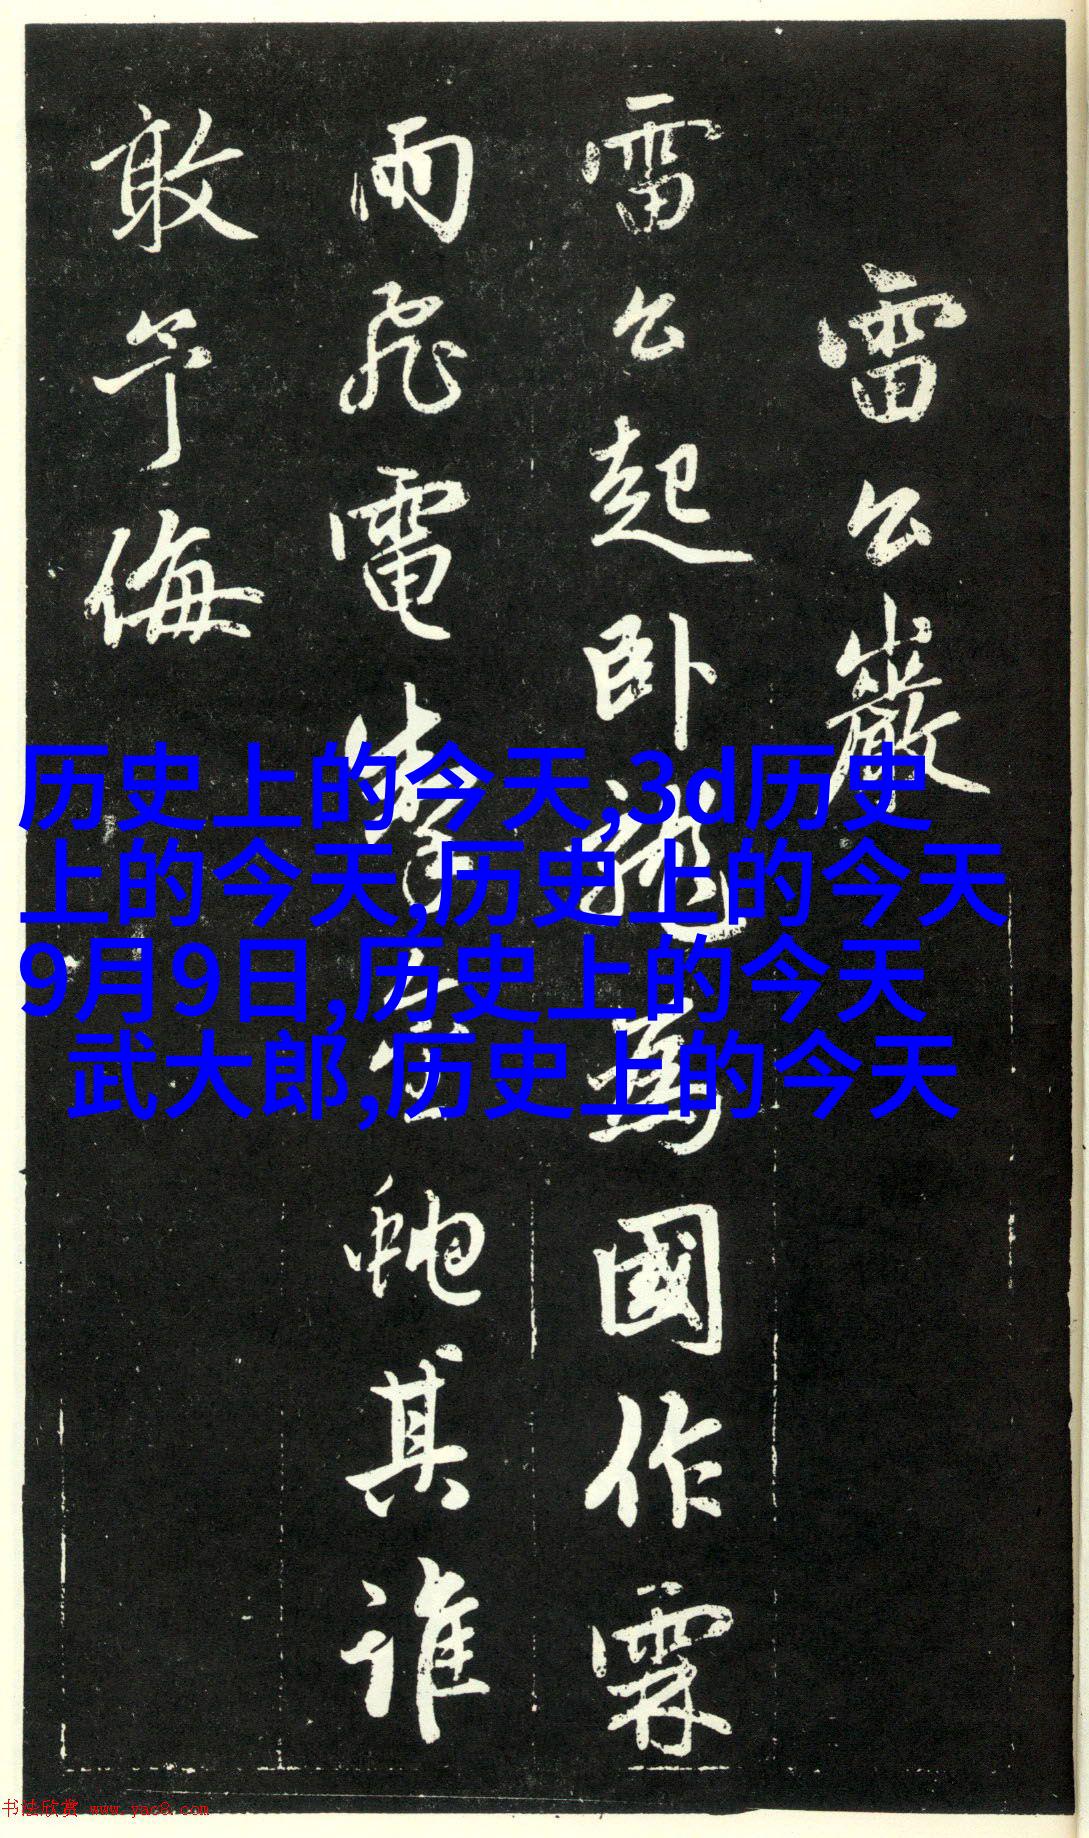 雷公巖
雷公起卧龍為國作霖
雨飛電掣金虵其誰
敢予侮
历史上的今天,3d历史
上的今天,历史上的今天
9月9日,历史上的今天
武大郎,历史上的今天
书法欣赏 www.yac8.com